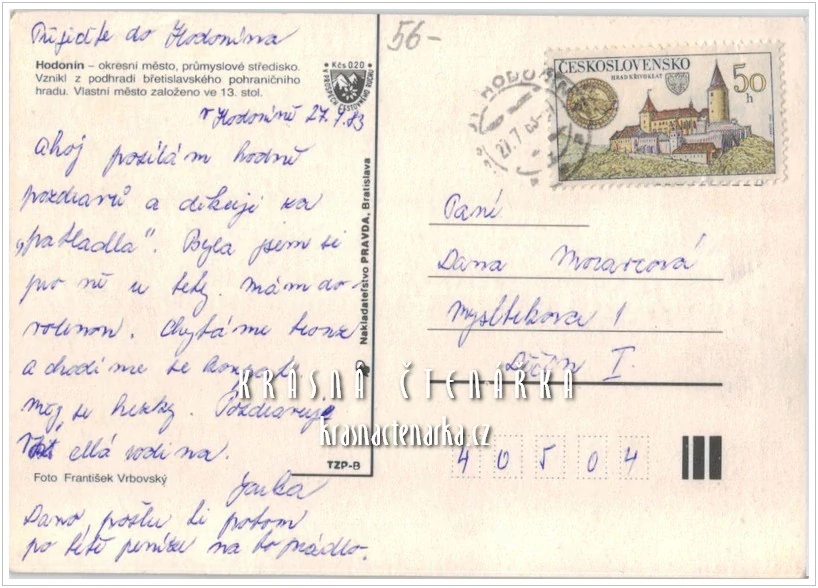 Přijeďte do Hodonína
56-
Hodonín – okresní město, průmyslové středisko.
Vznikl z podhradí břetislavského pohraničního
hradu. Vlastní město založeno ve 13. stol.
Kčs 0,20
v Hodoníně 27.7.83
Ahoj posílám hodně
pozdravů a děkuji za
"prádla". Byla jsem si
pro ně u tety. Mám do-
volenou. Chytáme bronz
a chodíme se koupat.
měj se hezky. Pozdravuje
Vás celá rodina.
Jarka
Dano, pošlu ti potom
po tětě peníze na to prádlo.
Foto František Vrbovský
TZP-B
Nakladateľstvo PRAVDA, Bratislava
ČESKOSLOVENSKO
HRAD KŘIVOKLÁT
50 h
HODONÍN
27.7.83
Paní
Dana Moravcová
Myslbekova 1
Děčín I.
40504
KRÁSNÁ ČTENÁŘKA
krasnactenarka.cz